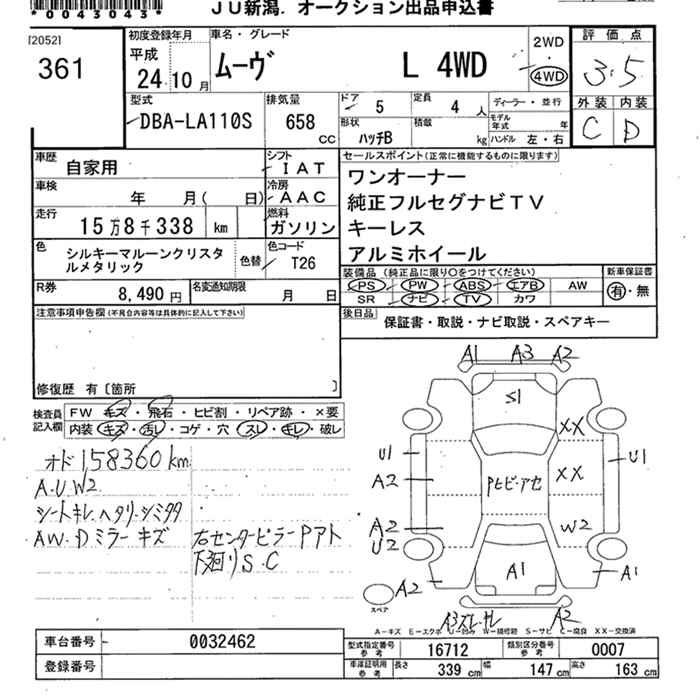 *0043043*
JU新潟. オークション出品申込書
[2052]
361
初度登録年月
平成
24年10月
車名・グレード
ムーヴ L 4WD
2WD
4WD
評価点
3.5
外装 内装
C D
型式
DBA-LA110S
排気量
658 CC
ドア 5
定員 4 人
形状 ハッチB
積載 kg
ディーラー・並行
モデル年式 年
ハンドル 左・右
車歴 自家用
シフト IAT
車検 年 月( 日)
冷房 AAC
走行 15万8千338 km
燃料 ガソリン
色 シルキーマルーンクリスタルメタリック
色替
色コード T26
R券 8,490円
名変通知期限 月 日
セールスポイント(正常に機能するものに限ります)
ワンオーナー
純正フルセグナビTV
キーレス
アルミホイール
装備品(純正品に限り○をつけてください)
PS PW ABS エアB AW
SR ナビ TV カワ
新車保証書
有・無
後日品 保証書・取説・ナビ取説・スペアキー
注意事項申告欄(不具合内容等は具体的に記入して下さい)
修復歴 有〔箇所 〕
検査員記入欄
FW キズ・飛石・ヒビ割・リペア跡・×要
内装 キズ・汚レ・コゲ・穴・スレ・キレ・破レ
オド158360km
A.U W2
シートキレ.ヘタリ.シミタタ
AW.Dミラーキズ
右センターピラーPアト
下廻りS.C
A1 A3 A2
S1
XX
U1
A2
PヒビーアセXX
U1
A2
U2
W2
A1
A2
A1
スペア
A3ズレ.キレ
A2
A-キズ E-エクボ U-凹み W-補修跡 S-サビ C-腐食 XX-交換済
車台番号 0032462
登録番号
型式指定番号 参考 16712
類別区分番号 参考 0007
車庫証明用 参考 長さ 339 cm 幅 147 cm 高さ 163 cm